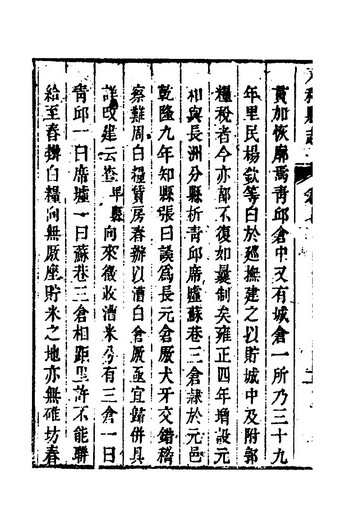 貢加恢廓焉靑邱倉中又有城倉一所乃三十九
年里民楊欽等白於巡撫建之以貯城中及附郭
糧稅者今亦都不復如曩制矣雍正四年增設元
和與長洲分縣析靑邱席墟蘇巷三倉隸於元邑
乾隆九年知縣張曰謨爲長元倉厫犬牙交錯稽
察難周白糧貨房舂辦以漕白倉厫亟宜歸併具
詳改建云卷卑縣向來徵收漕米乃有三倉一曰
靑邱一曰席墟一曰蘇巷三倉相距里許不能聯
給至舂辦白糧向無厫座貯米之地亦無碓坊舂